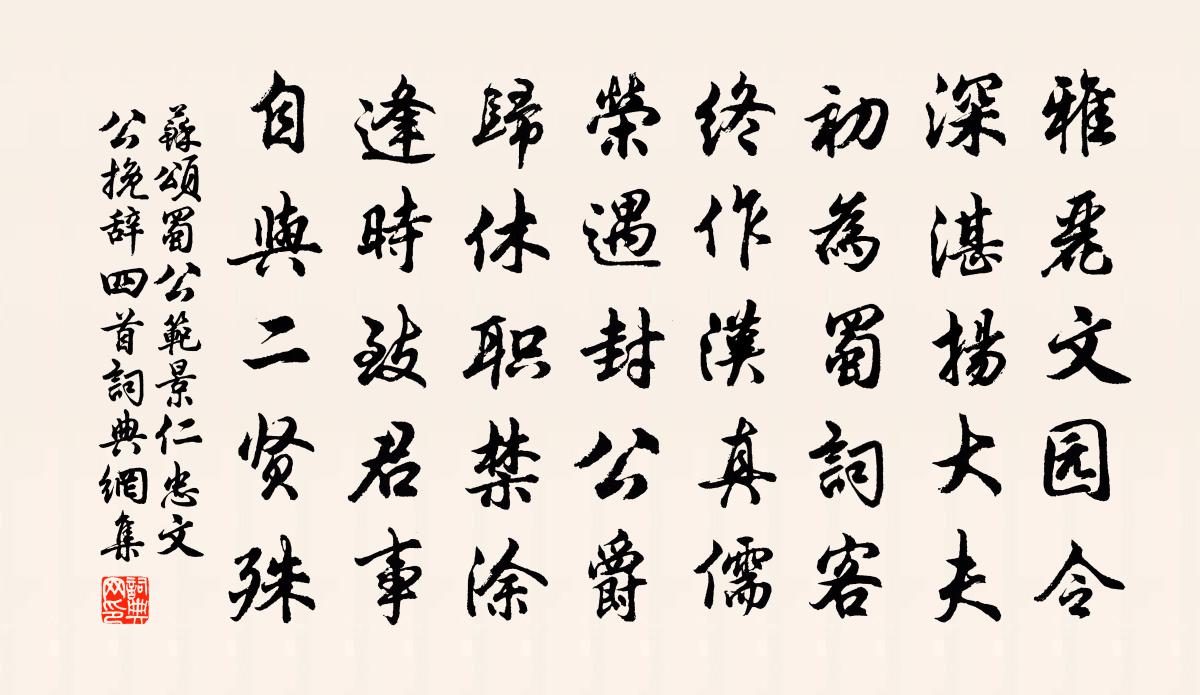 雅麗文园令
深湛揚大夫
初為蜀詞客
终作漢真儒
榮遇封公爵
歸休职禁涂
逢時致君事
自與二贤殊
蘇頌蜀公範景仁忠文
公挽辞四首詞典網集
詞典网印